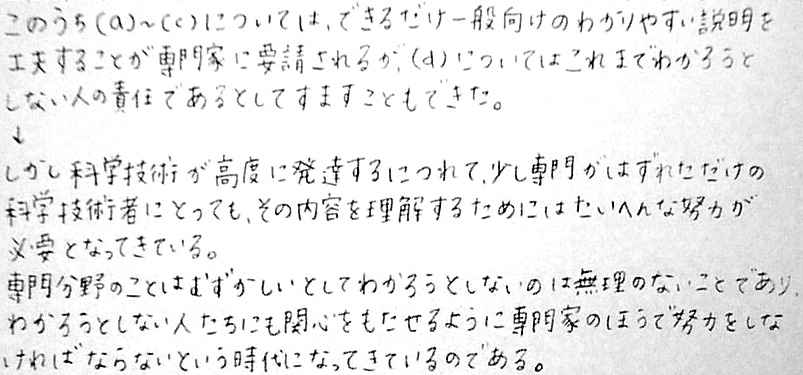 このうち(a)～(c)については、できるだけ一般向けのわかりやすい説明を
工夫することが専門家に要請されるが、(d)についてはこれまでわかろうと
しない人の責任であるとしてすますこともできた。
↓
しかし科学技術が高度に発達するにつれて、少し専門がはずれただけの
科学技術者にとっても、その内容を理解するためにはたいへんな努力が
必要となってきている。
専門分野のことはむずかしいとしてわかろうとしないのは無理のないことであり、
わかろうとしない人たちにも関心をもたせるように専門家のほうで努力をしな
ければならないという時代になってきているのである。